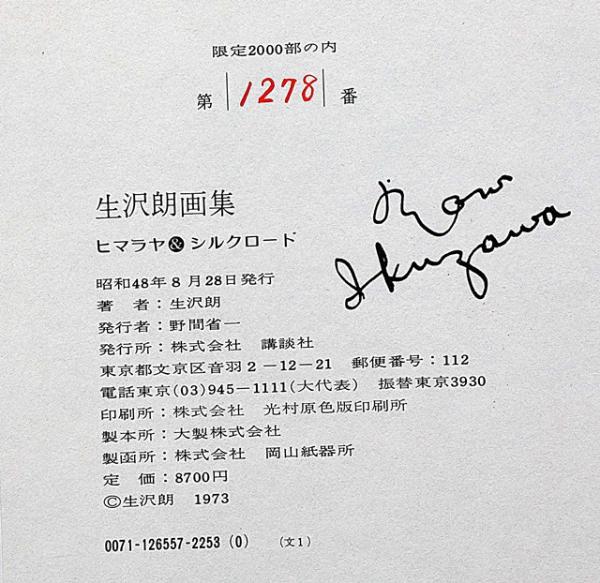 限定2000部の内
第 1278 番
生沢朗画集
ヒマラヤ&シルクロード
Row
Ikuzawa
昭和48年8月28日発行
著 者:生沢朗
発行者:野間省一
発行所:株式会社 講談社
東京都文京区音羽2-12-21 郵便番号:112
電話東京(03)945-1111(大代表) 振替東京3930
印刷所:株式会社 光村原色版印刷所
製本所:大製株式会社
製函所:株式会社 岡山紙器所
定 価:8700円
©生沢朗 1973
0071-126557-2253(0) (文1)